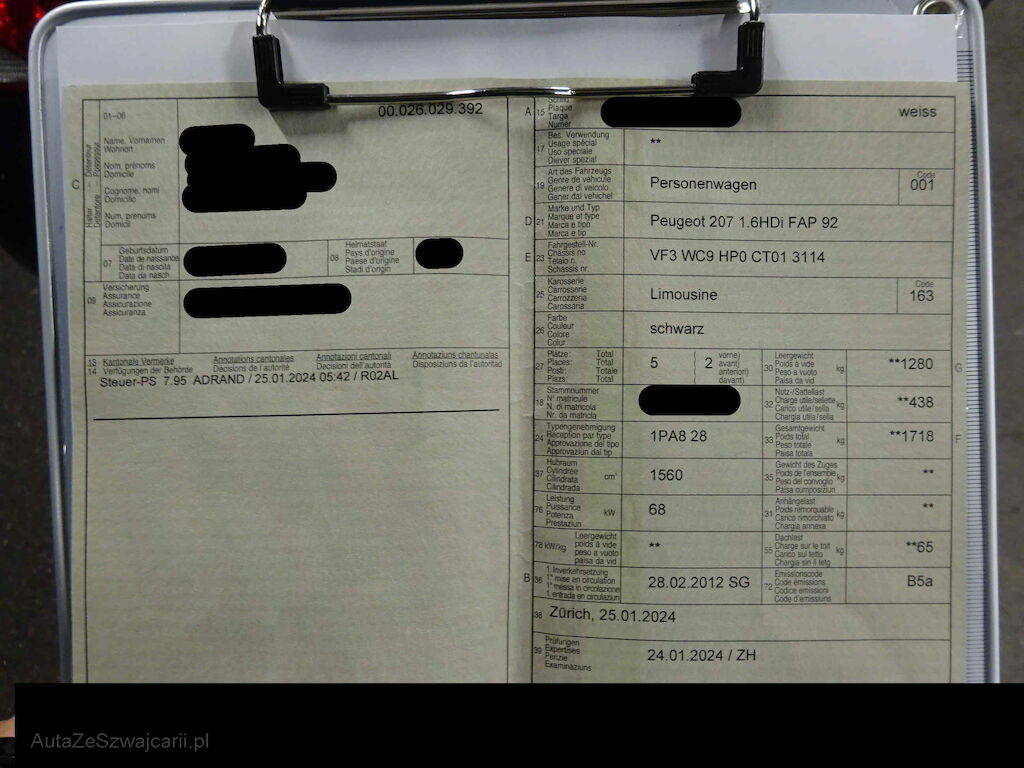 01–06
00.026.029.392
C
Halter – Détenteur
Detentore – Possessur
Name, Vornamen
Wohnort
Nom, prénoms
Domicile
Cognome, nomi
Domicilio
Num, prenums
Domicil
07
Geburtsdatum
Date de naissance
Data di nascita
Data da nasch.
08
Heimatstaat
Pays d'origine
Paese d'origine
Stadi d'origin
09
Versicherung
Assurance
Assicurazione
Assicuranza
13 Kantonale Vermerke
14 Verfügungen der Behörde
Annotations cantonales
Décisions de l'autorité
Annotazioni cantonali
Decisioni dell'autorità
Annotaziuns chantunalas
Disposiziuns da l'autoritad
Steuer-PS 7.95 ADRAND / 25.01.2024 05:42 / R02AL
A 15
Schild
Plaque
Targa
Numer
weiss
17
Bes. Verwendung
Usage spécial
Uso speciale
Diever spezial
**
19
Art des Fahrzeugs
Genre de véhicule
Genere di veicolo
Gener dal vehichel
Personenwagen
Code
001
D 21
Marke und Typ
Marque et type
Marca e tipo
Marca e tip
Peugeot 207 1.6HDi FAP 92
E 23
Fahrgestell-Nr.
Châssis no
Telaio n.
Schassis nr.
VF3 WC9 HP0 CT01 3114
25
Karosserie
Carrosserie
Carrozzeria
Carossaria
Limousine
Code
163
26
Farbe
Couleur
Colore
Colur
schwarz
27
Plätze: Total
Places: Total
Posti: Totale
Plazs: Total
5
( 2
vorne)
avant)
anteriori)
davant)
30
Leergewicht
Poids à vide
Peso a vuoto
Paisa da vid
kg
**1280
G
18
Stammnummer
N° matricule
N. di matricola
Nr. da matricla
32
Nutz-/Sattellast
Charge utile/sellette
Carico utile/sella
Chargia utila/sella
kg
**438
24
Typengenehmigung
Réception par type
Approvazione del tipo
Approvaziun dal tip
1PA8 28
33
Gesamtgewicht
Poids total
Peso totale
Paisa totala
kg
**1718
F
37
Hubraum
Cylindrée
Cilindrata
Cilindrada
cm³
1560
35
Gewicht des Zuges
Poids de l'ensemble
Peso del convoglio
Paisa cumposiziun
kg
**
76
Leistung
Puissance
Potenza
Prestaziun
kW
68
31
Anhängelast
Poids remorquable
Carico rimorchiato
Chargia annexa
kg
**
78 kW/kg
Leergewicht
poids à vide
peso a vuoto
paisa da vid
**
55
Dachlast
Charge sur le toit
Carico sul tetto
Chargia sin il tetg
kg
**65
B 36
1. Inverkehrsetzung
1re mise en circulation
1a messa in circolazione
1. entrada en circulaziun
28.02.2012 SG
72
Emissionscode
Code émissions
Codice emissioni
Code d'emissiuns
B5a
38
Zürich, 25.01.2024
39
Prüfungen
Expertises
Perizie
Examinaziuns
24.01.2024 / ZH
AutaZeSzwajcarii.pl